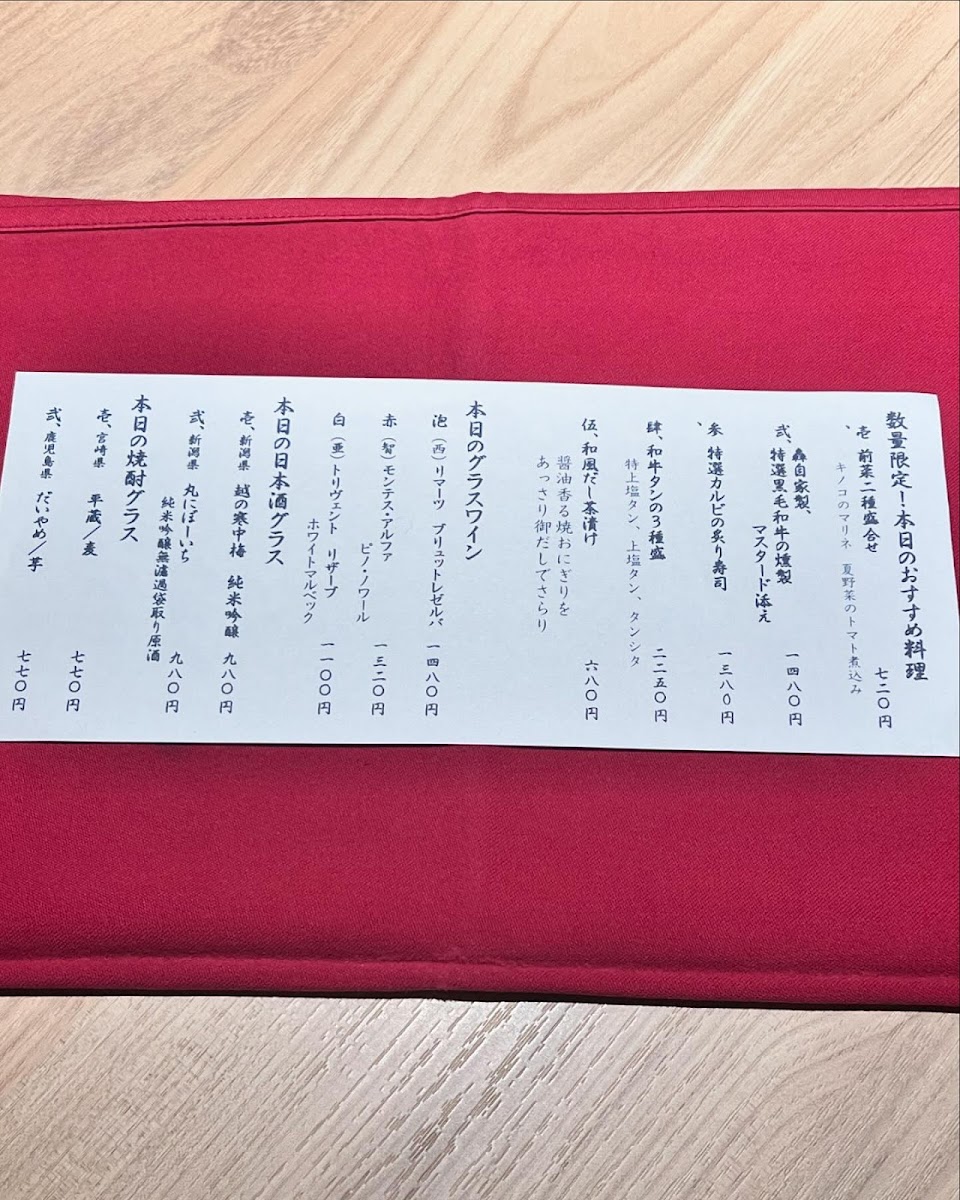 数量限定！本日のおすすめ料理
壱、前菜二種盛合せ
キノコのマリネ　夏野菜のトマト煮込み
七二〇円
弐、轟自家製、
特選黒毛和牛の燻製
マスタード添え
一四八〇円
参、特選カルビの炙り寿司
一三八〇円
肆、和牛タンの３種盛
特上塩タン、上塩タン、タンシタ
二二五〇円
伍、和風だし茶漬け
醤油香る焼おにぎりを
あっさり御だしでさらり
六八〇円
本日のグラスワイン
泡（西）リマーツ　ブリュットレゼルバ
一四八〇円
赤（智）モンテス・アルファ
ピノ・ノワール
一三二〇円
白（亜）トリヴェント　リザーブ
ホワイトマルベック
一一〇〇円
本日の日本酒グラス
壱、新潟県　越の寒中梅　純米吟醸
九八〇円
弐、新潟県　丸にぼーいち
純米吟醸無濾過袋取り原酒
九八〇円
本日の焼酎グラス
壱、宮崎県　平蔵／麦
七七〇円
弐、鹿児島県　だいやめ／芋
七七〇円